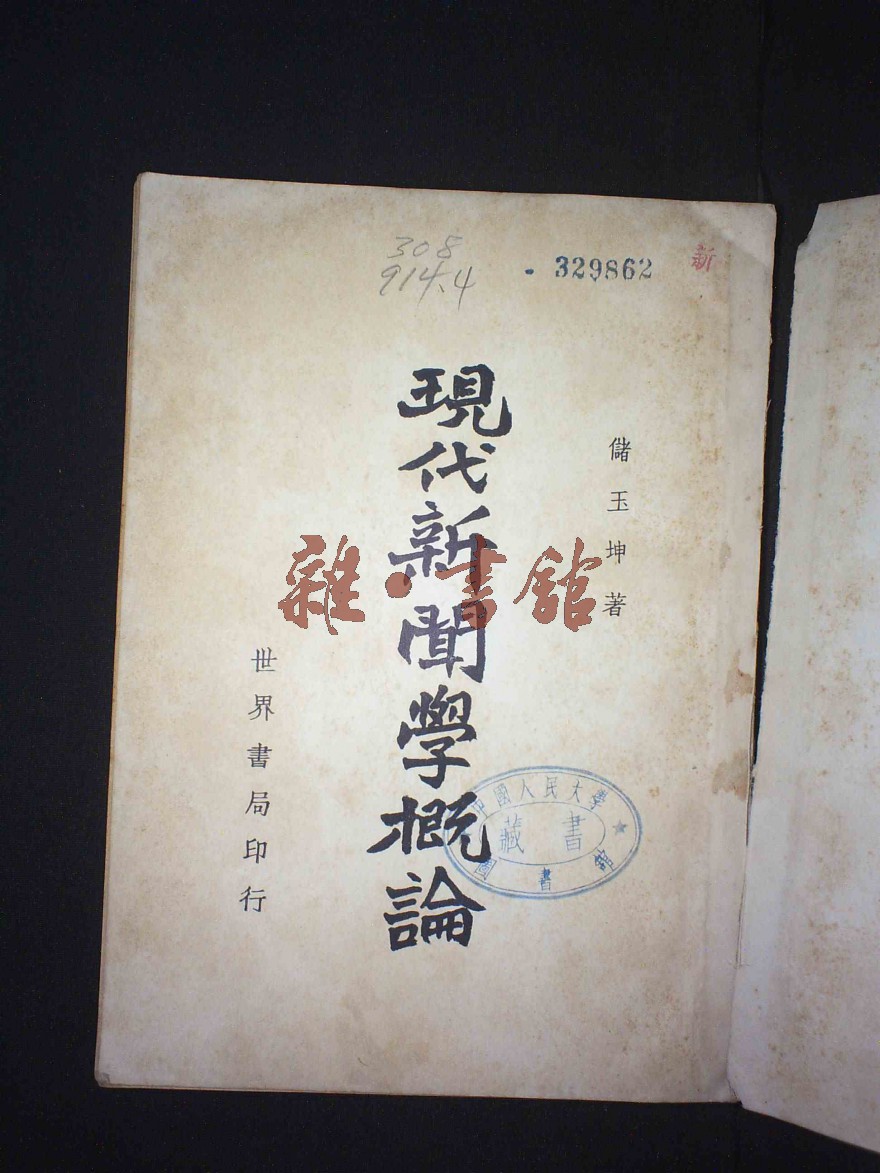 308
914.4
329862
新
儲玉坤著
現代新聞學概論
世界書局印行
中國人民大學
藏書
圖書館
雜·書館